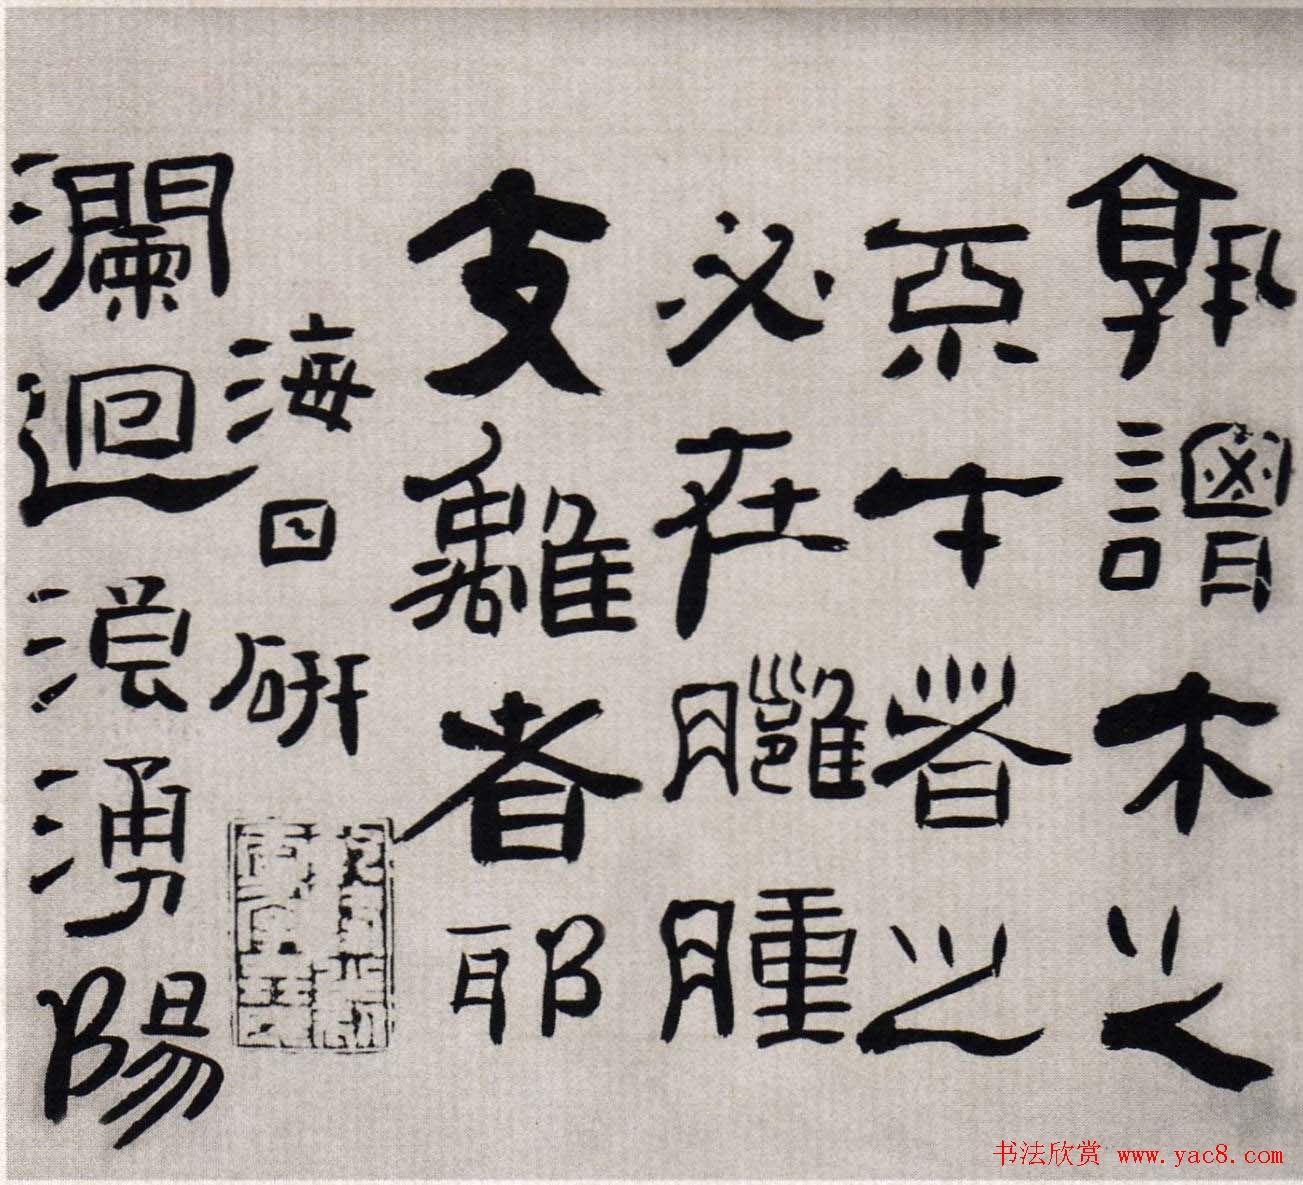 孰謂木之
才者之
必在臃腫
支離者耶
海日研
瀾迴浪湧陽
书法欣赏 www.yac8.com